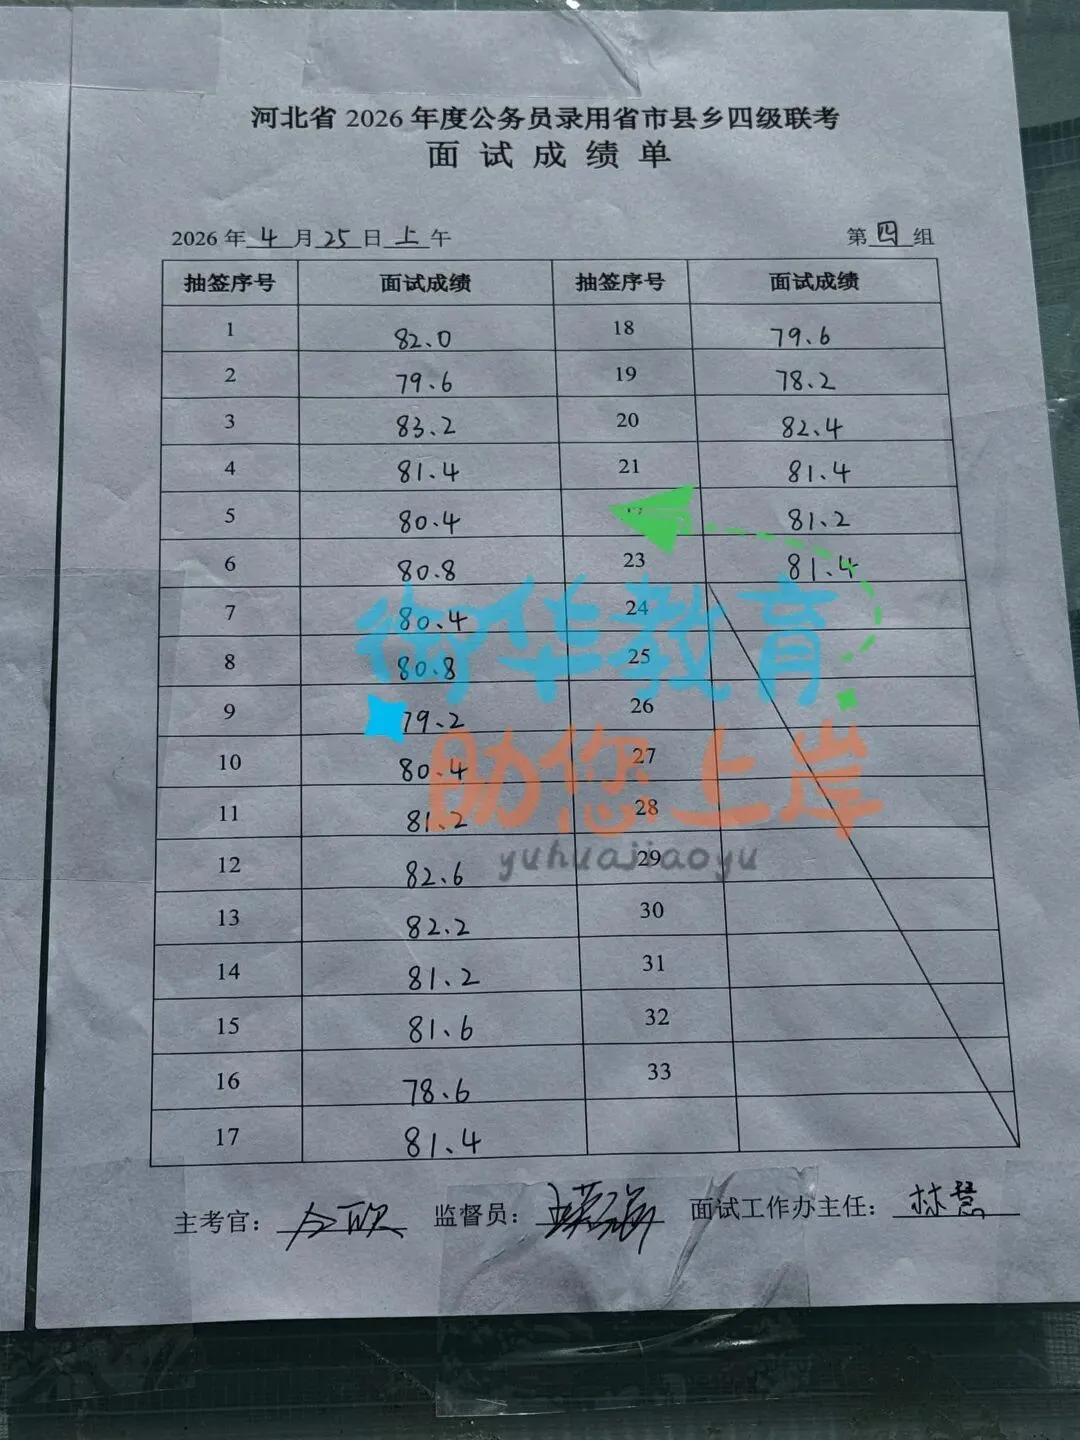 河北省 2026 年度公务员录用省市县乡四级联考
面试成绩单
2026 年 4 月 25 日 上 午 第 四 组
抽签序号 面试成绩 抽签序号 面试成绩
1 82.0 18 79.6
2 79.6 19 78.2
3 83.2 20 82.4
4 81.4 21 81.4
5 80.4 81.2
6 80.8 23 81.4
7 80.4 24
8 80.8 25
9 79.2 26
10 80.4 27
11 81.2 28
12 82.6 29
13 82.2 30
14 81.2 31
15 81.6 32
16 78.6 33
17 81.4
御华教育
助您上岸
yuhuajiaoyu
主考官： 监督员： 面试工作办主任： 林慧